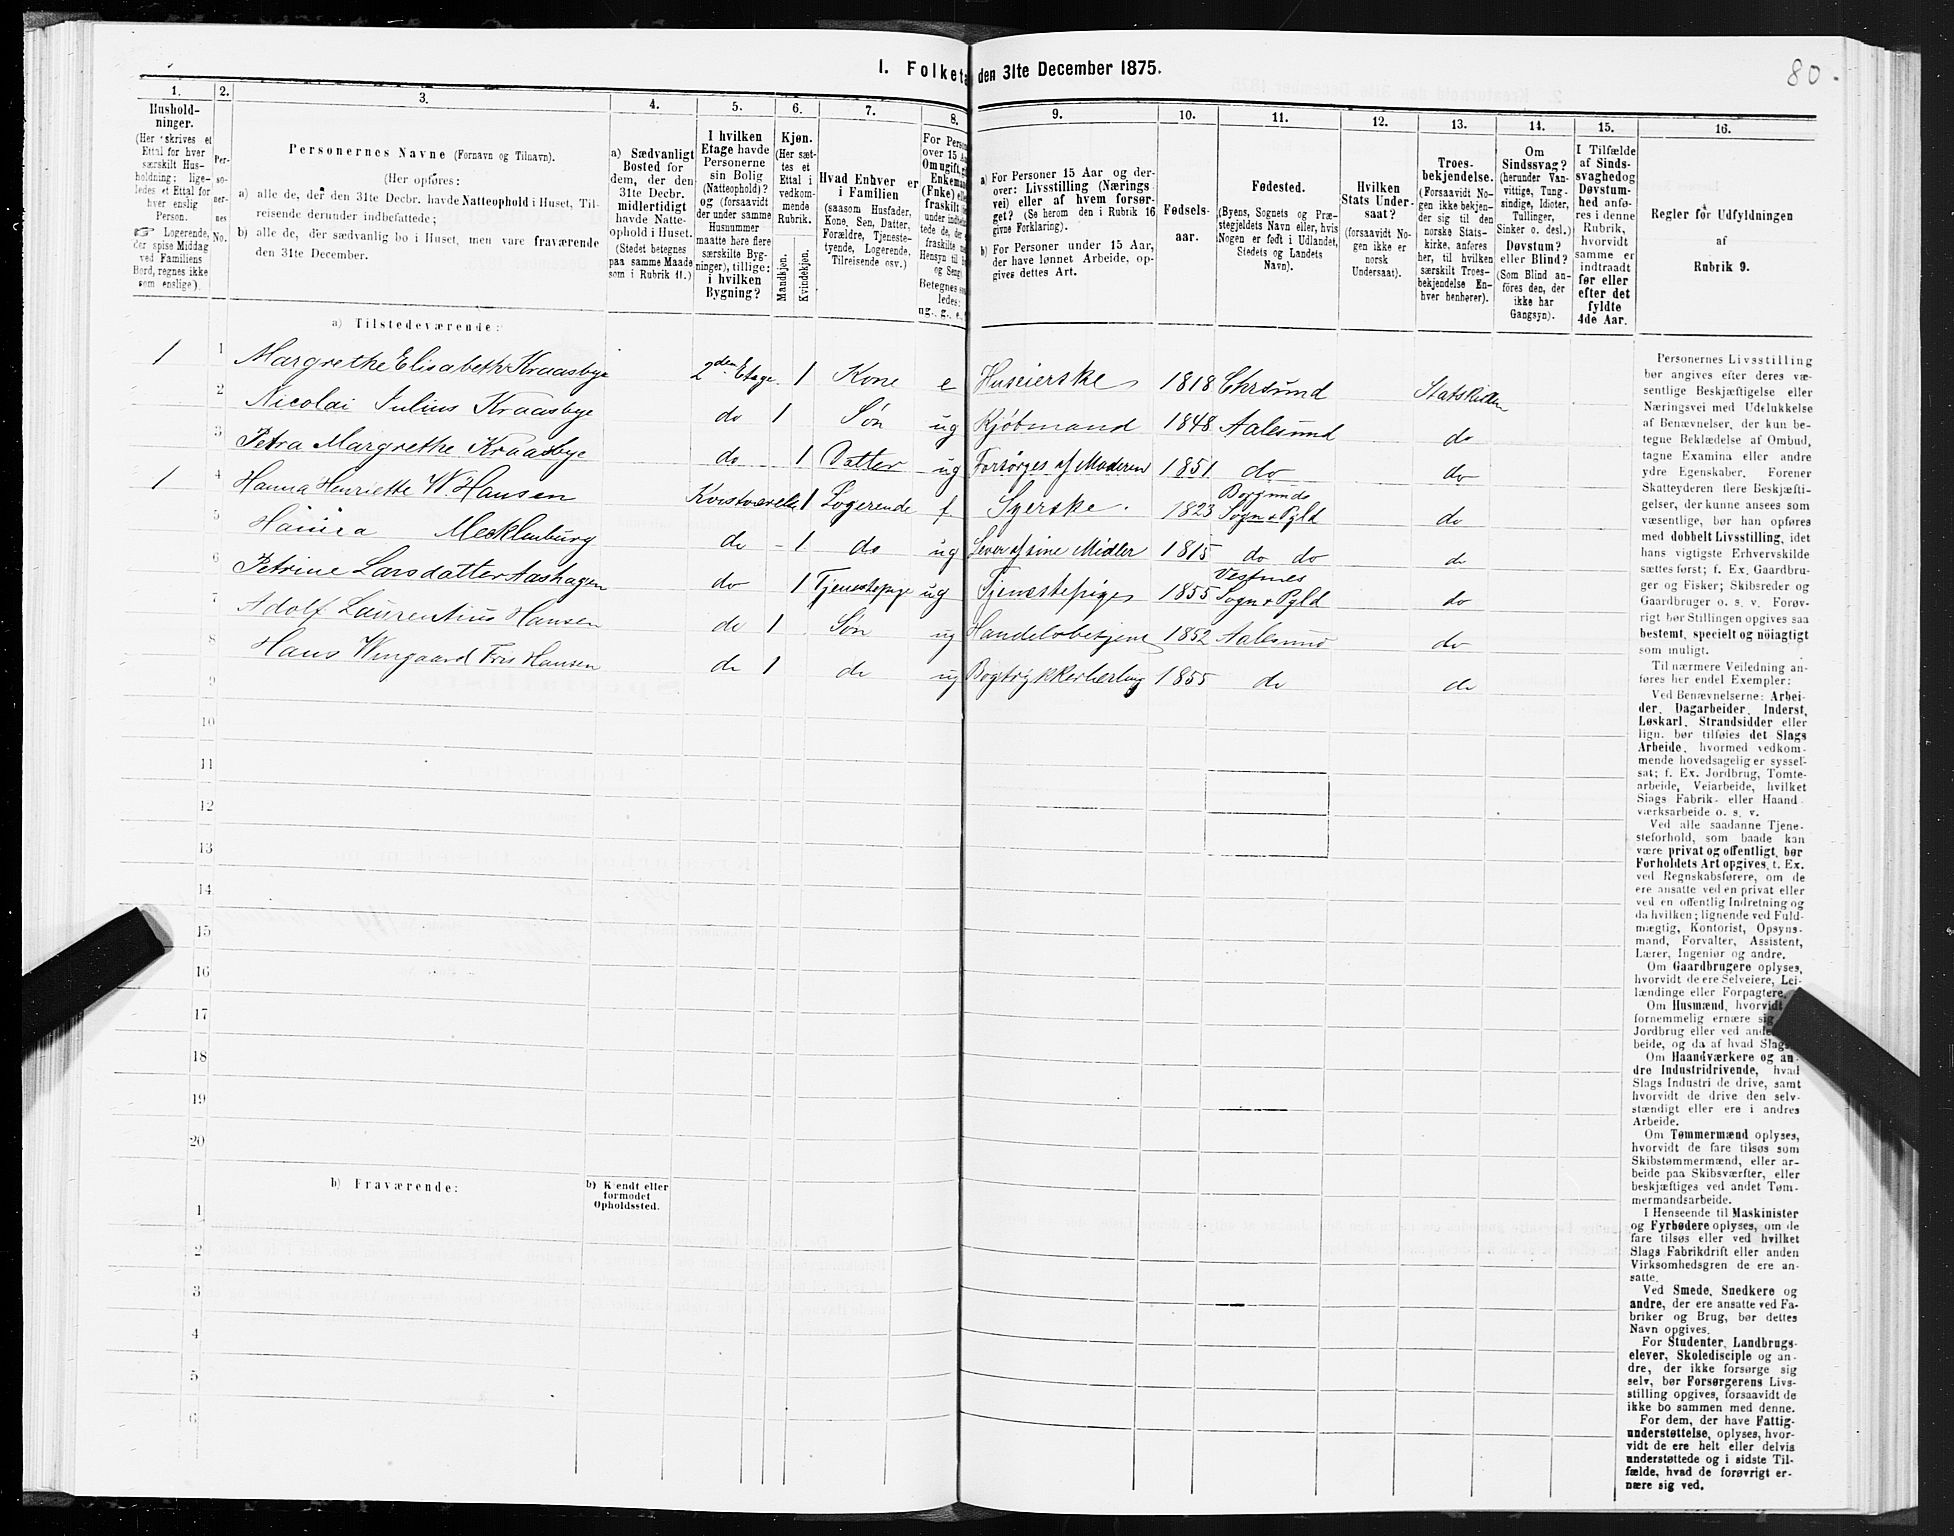 I. Folketæ
den 31te December 1875.
80.
1.
Hushold-
ninger.
(Her skrives et
Ettal for hver
særskilt Hus-
holdning; lige-
ledes et Ettal for
hver enslig
Person.
☞ Logerende,
der spise Middag
ved Familiens
Bord, regnes ikke
som enslige).
2.
Per-
so-
ner-
nes
No.
3.
Personernes Navne (Fornavn og Tilnavn).
(Her opføres:
a) alle de, der den 31te Decbr. havde Natteophold i Huset, Til-
reisende derunder indbefattede;
b) alle de, der sædvanlig bo i Huset, men vare fraværende
den 31te December.
4.
a) Sædvanligt
Bosted for
dem, der den
31te Decbr.
midlertidigt
havde Natte-
ophold i Huset.
(Stedet betegnes
paa samme Maade
som i Rubrik 11.)
5.
I hvilken
Etage havde
Personerne
sin Bolig
(Natteophold)?
og (forsaavidt
der under samme
Husnummer
maatte høre flere
særskilte Byg-
ninger), tillige:
i hvilken
Bygning?
6.
Kjøn.
(Her sæt-
tes et
Ettal i
vedkom-
mende
Rubrik.
Mandkjøn.
Kvindekjøn.
7.
Hvad Enhver er
i Familien
(saasom Husfader,
Kone, Søn, Datter,
Forældre, Tjeneste-
tyende, Logerende,
Tilreisende osv.)
8.
For Person
over 15 Aa
Om ugift, g
Enkeman
(Enke) ell
fraskilt
under indbe
tede de, der
fraskilte
Hensyn til
og Seng.
Betegnes sa
ledes:
ug., g., e.,
9.
a) For Personer 15 Aar og der-
over: Livsstilling (Nærings
vei) eller af hvem forsør-
get? (Se herom den i Rubrik 16
givne Forklaring).
b) For Personer under 15 Aar,
der have lønnet Arbeide, op-
gives dettes Art.
10.
Fødsels-
aar.
11.
Fødested.
(Byens, Sognets og Præ-
stegjeldets Navn eller, hvis
Nogen er født i Udlandet,
Stedets og Landets
Navn).
12.
Hvilken
Stats Under-
saat?
(forsaavidt No-
gen ikke er
norsk
Undersaat).
13.
Troes-
bekjendelse.
(Forsaavidt No-
gen ikke bekjen-
der sig til den
norske Stats-
kirke, anføres
her, til hvilken
særskilt Troes-
bekjendelse En-
hver henhører).
14.
Om
Sindssvag?
(herunder Van-
vittige, Tung-
sindige, Idioter,
Tullinger,
Sinker o. desl.)
Døvstum?
eller Blind?
(Som Blind an-
føres den, der
ikke har
Gangsyn).
15.
I Tilfælde
af Sinds-
svaghed og
Døvstum-
hed anfø-
res i denne
Rubrik,
hvorvidt
samme er
indtraadt
før eller
efter det
fyldte
4de Aar.
16.
Regler for Udfyldningen
af
Rubrik 9.
a) Tilstedeværende:
1 1 Margrethe Elisabeth Kraasbye 2den Etage. 1 Kone e Huseierske 1818 Chrsund Statskirken
2 Nicolai Julius Kraasbye do 1 Søn ug Kjøbmand 1848 Aalesund do
3 Petra Margrethe Kraasbye do 1 Datter ug Forsørges af Moderen 1851 do do
1 4 Hanna Henriette W Hansen Kvistværelse 1 Logerende f. Syerske. 1823 Borgunds Sogn & Pgld do
5 Mecklenburg do 1 do ug Lever af sine Midler 1815 do do do
6 Petrine Larsdatter Aashagen do 1 Tjenestepige ug Tjenestepige 1855 Vestnes Sogn & Pgld do
7 Adolf Laurentius Hansen do 1 Søn ug Handelsbetjent 1852 Aalesund do
8 Hans Wingaard Friis Hansen do 1 do ug Bogtrykkerlærling 1855 do do
9
10
11
12
13
14
15
16
17
18
19
20
b) Fraværende:
b) Kjendt eller
formodet
Opholdssted.
1
2
3
4
5
6
Personernes Livsstilling
bør angives efter deres væ-
sentlige Beskjæftigelse eller
Næringsvei med Udelukkelse
af Benævnelser, der kun be-
tegne Beklædelse af Ombud,
tagne Examina eller andre
ydre Egenskaber. Forener
Skatteyderen flere Beskjæfti-
gelser, der kunne ansees som
væsentlige, bør han opføres
med dobbelt Livsstilling, idet
hans vigtigste Erhvervskilde
sættes først; f. Ex. Gaardbru-
ger og Fisker; Skibsreder og
Gaardbruger o. s. v. Forøv-
rigt bør Stillingen opgives saa
bestemt, specielt og nöiagtigt
som muligt.
Til nærmere Veiledning an-
føres her endel Exempler:
Ved Benævnelserne: Arbei-
der, Dagarbeider, Inderst,
Løskarl, Strandsidder eller
lign. bør tilføies det Slags
Arbeide, hvormed vedkom-
mende hovedsagelig er syssel-
sat; f. Ex. Jordbrug, Tomte-
arbeide, Veiarbeide, hvilket
Slags Fabrik- eller Haand-
værksarbeide o. s. v.
Ved alle saadanne Tjene-
steforhold, som baade kan
være privat og offentligt, bør
Forholdets Art opgives, t. Ex.
ved Regnskabsførere, om de
ere ansatte ved en privat eller
ved en offentlig Indretning og
da hvilken; lignende ved Fuld-
mægtig, Kontorist, Opsyns-
mand, Forvalter, Assistent,
Lærer, Ingeniør og andre.
Om Gaardbrugere oplyses,
hvorvidt de ere Selveiere, Lei-
lændinge eller Forpagtere.
Om Husmænd, hvorvidt
fornemmelig ernære sig
Jordbrug eller ved ande
beide, og da af hvad Slags.
Om Haandværkere og an-
dre Industridrivende, hvad
Slags Industri de drive, samt
hvorvidt de drive den selv-
stændigt eller ere i andres
Arbeide.
Om Tømmermænd oplyses,
hvorvidt de fare tilsøs som
Skibstømmermænd, eller ar-
beide paa Skibsværfter, eller
beskjæftiges ved andet Tøm-
mermandsarbeide.
I Henseende til Maskinister
og Fyrbødere oplyses, om de
fare tilsøs eller ved hvilket
Slags Fabrikdrift eller anden
Virksomhedsgren de ere an-
satte.
Ved Smede, Snedkere og
andre, der ere ansatte ved Fa-
briker og Brug, bør dettes
Navn opgives.
For Studenter, Landbrugs-
elever, Skoledisciple og an-
dre, der ikke forsørge sig
selv, bør Forsørgerens Livs-
stilling opgives, forsaavidt de
ikke bo sammen med denne.
For dem, der have Fattig-
understøttelse, oplyses, hvor-
vidt de ere helt eller delvis
understøttede og i sidste Til-
fælde, hvad de forøvrigt er-
nære sig ved.